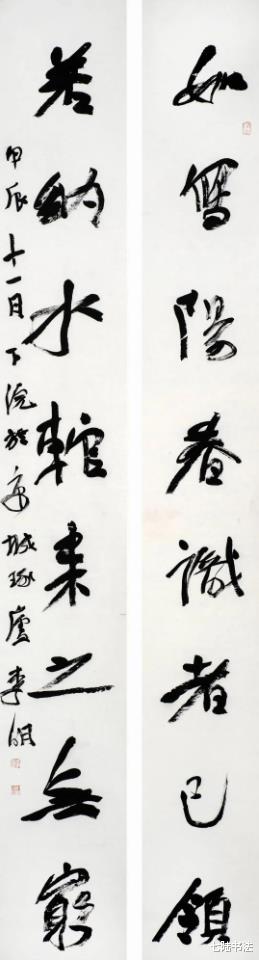 如寫陽春識者已領
若納水輨來之無窮
甲辰十一月下浣於城琢廬李
七陆书法